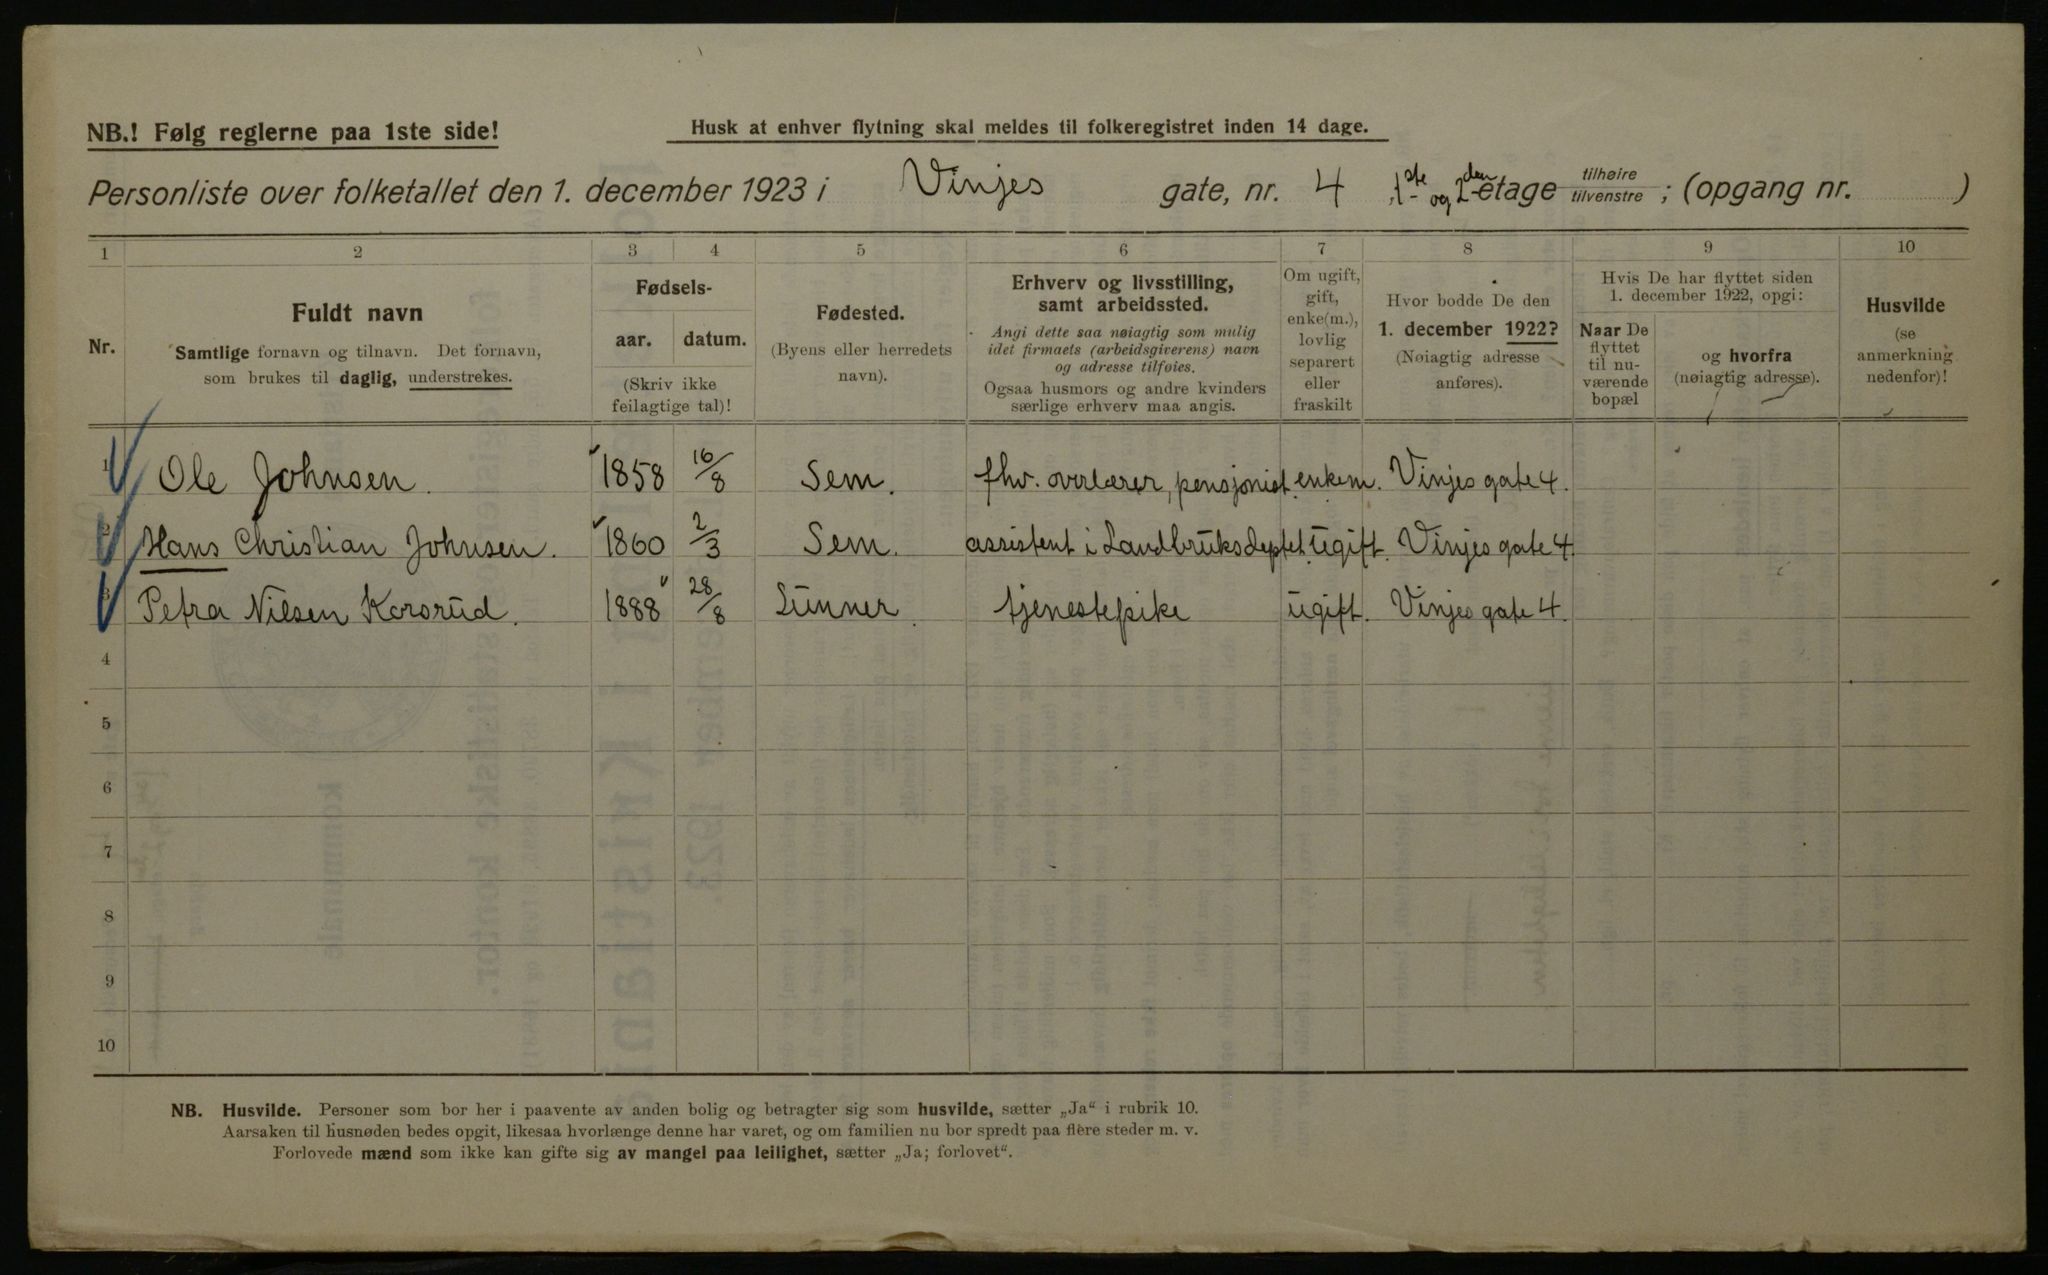 NB.! Følg reglerne paa 1ste side!
Husk at enhver flytning skal meldes til folkeregistret inden 14 dage.
Personliste over folketallet den 1. december 1923 i Vinjes gate, nr. 4 , 1ste og 2den etage tilhøire tilvenstre ; (opgang nr. )
1 2 3 4 5 6 7 8 9 10
Nr.
Fuldt navn
Samtlige fornavn og tilnavn. Det fornavn,
som brukes til daglig, understrekes.
Fødsels-
aar. datum.
(Skriv ikke
feilagtige tal)!
Fødested.
(Byens eller herredets
navn).
Erhverv og livsstilling,
samt arbeidssted.
Angi dette saa nøiagtig som mulig
idet firmaets (arbeidsgiverens) navn
og adresse tilføies.
Ogsaa husmors og andre kvinders
særlige erhverv maa angis.
Om ugift,
gift,
enke(m.),
lovlig
separert
eller
fraskilt
Hvor bodde De den
1. december 1922?
(Nøiagtig adresse
anføres).
Hvis De har flyttet siden
1. december 1922, opgi:
Naar De
flyttet
til nu-
værende
bopæl
og hvorfra
(nøiagtig adresse).
Husvilde
(se
anmerkning
nedenfor)!
1 Ole Johnsen. 1858 16/8 Sem. fhv. overlærer, pensjonist enkem. Vinjes gate 4.
2 Hans Christian Johnsen. 1860 2/3 Sem. assistent i Landbruksdeptet. ugift. Vinjes gate 4.
3 Petra Nilsen Korsrud. 1888 28/8 Lunner. tjenestepike ugift. Vinjes gate 4.
4
5
6
7
8
9
10
NB. Husvilde. Personer som bor her i paavente av anden bolig og betragter sig som husvilde, sætter „Ja“ i rubrik 10.
Aarsaken til husnøden bedes opgit, likesaa hvorlænge denne har varet, og om familien nu bor spredt paa flere steder m. v.
Forlovede mænd som ikke kan gifte sig av mangel paa leilighet, sætter „Ja; forlovet“.